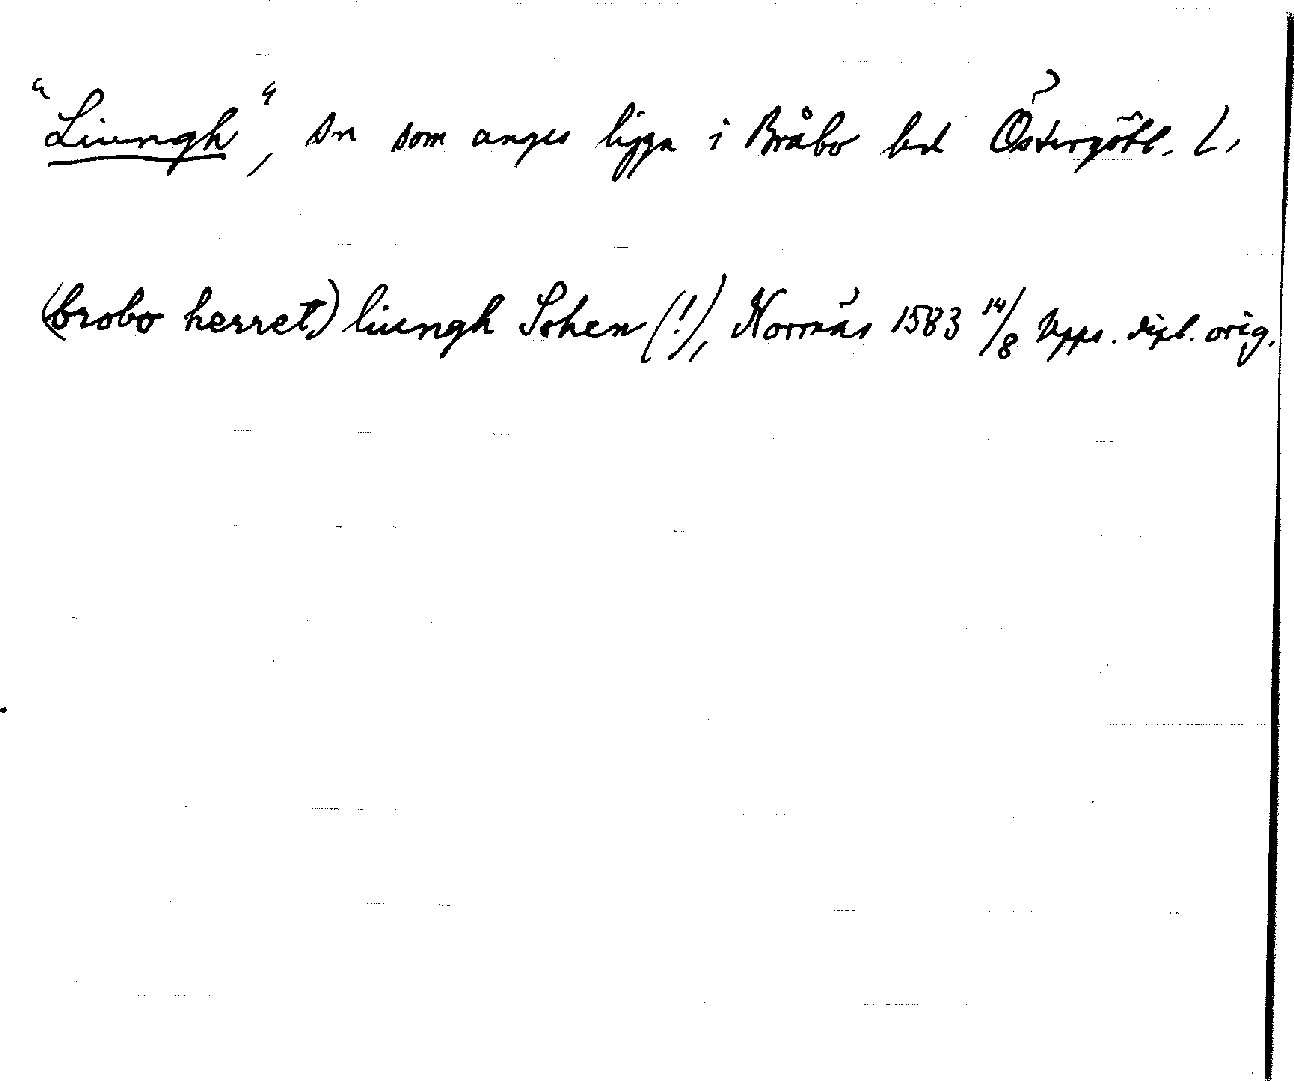 "Liungh", sn som anges ligga i Bråbo hd Östergötl. L.
(brobo herret) liungh Sohen (!), Norrnäs 1583 14/8 Upps. dipl. orig.